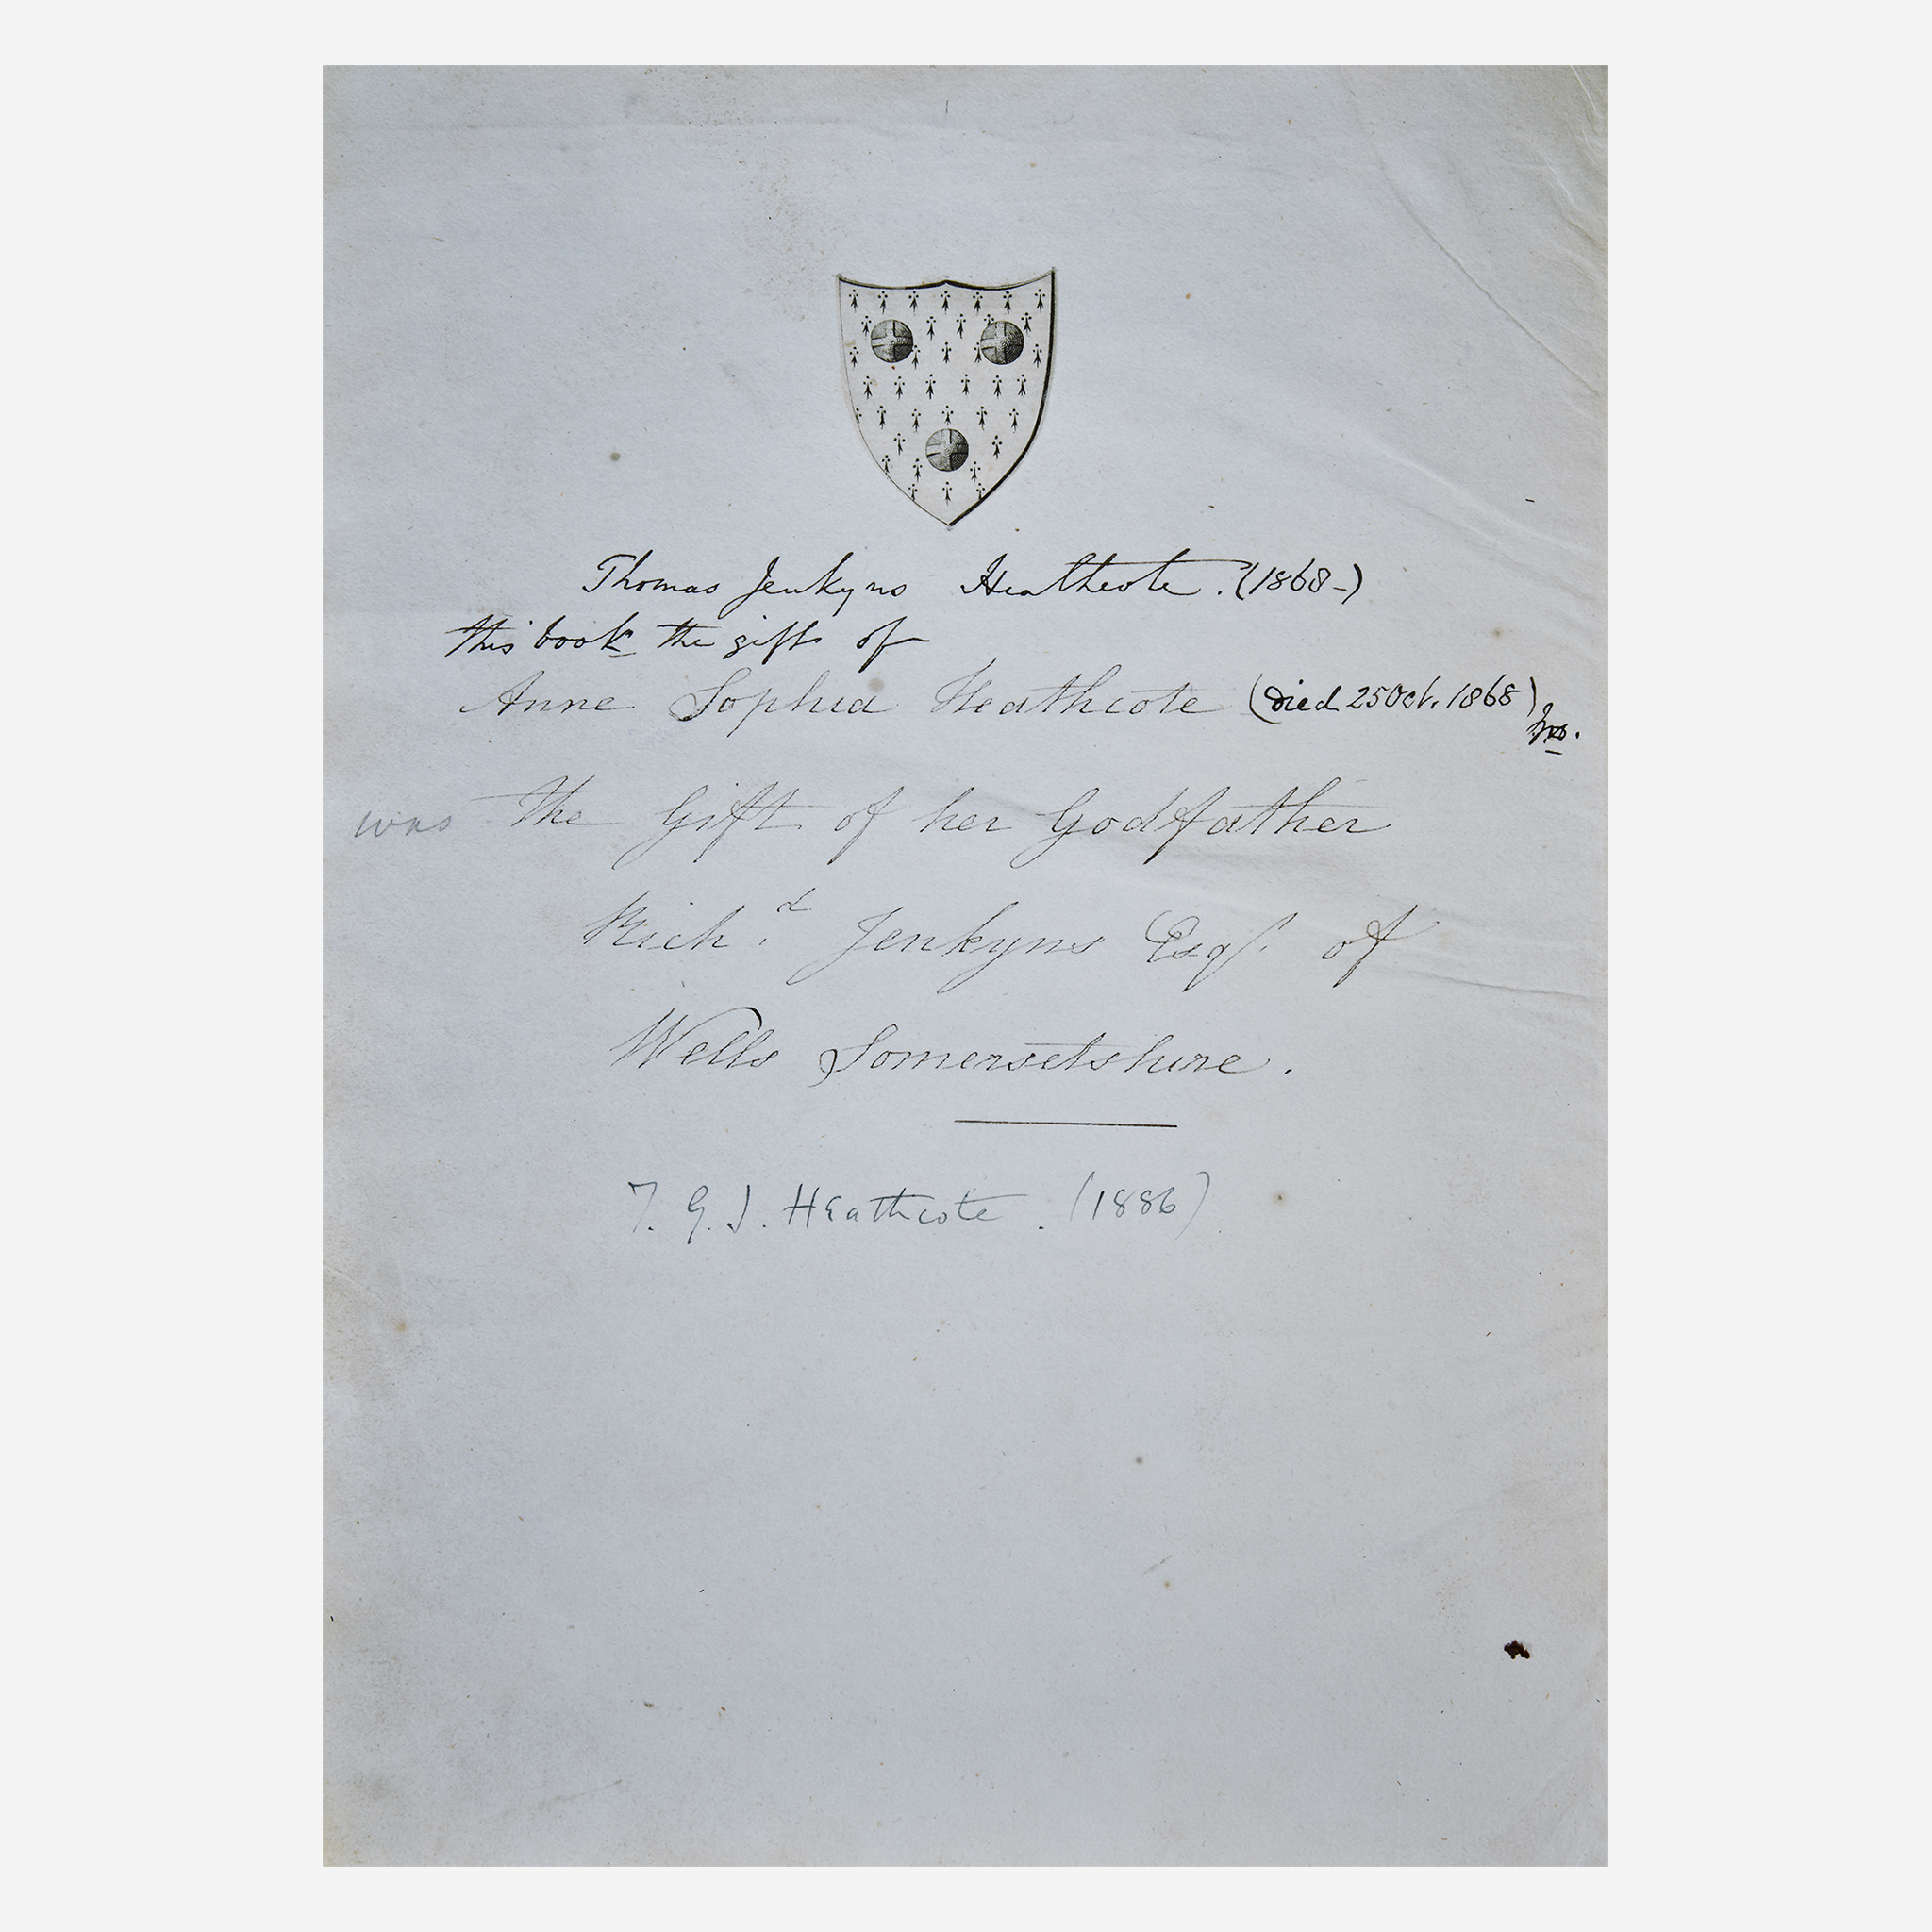 Thomas Jenkyns Heathcote. (1868-)
this book the gift of
Anne Sophia Heathcote (died 25 Oct. 1868)
was the Gift of her Godfather
Rich.d Jenkyns Esqr. of
Wells Somersetshire.
T. G. J. Heathcote. (1886)